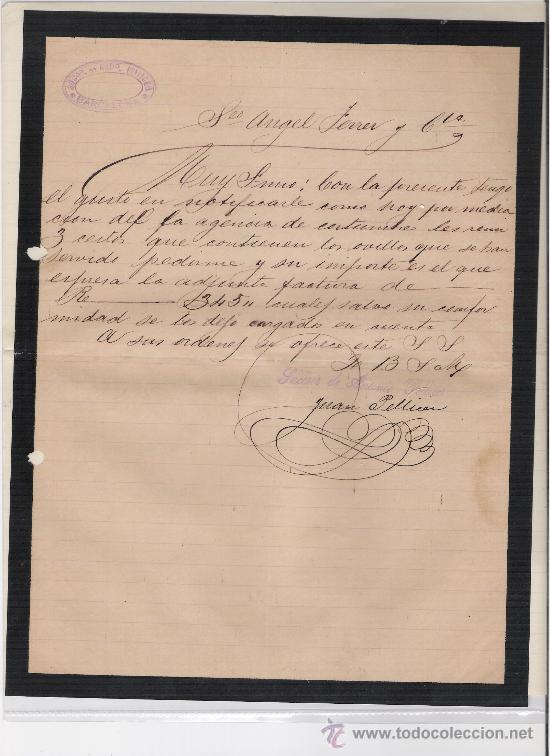 BARCELONA
Sres Angel Ferrer y Cia.
Muy Srmio: Con la presente tengo
el gusto en notificarle como hoy por media
cion del la agencia de costumbre les remi
3 cestos que contienen los ovillos que se han
servido pedirme y su importe es el que
espresa la adjunta factura de
R 3454 cuales salvo su confor
midad se los dejo cargados en cuenta
A sus ordenes se ofrece este S S
Q B S M
de
Juan Pellicer
todocoleccion.net